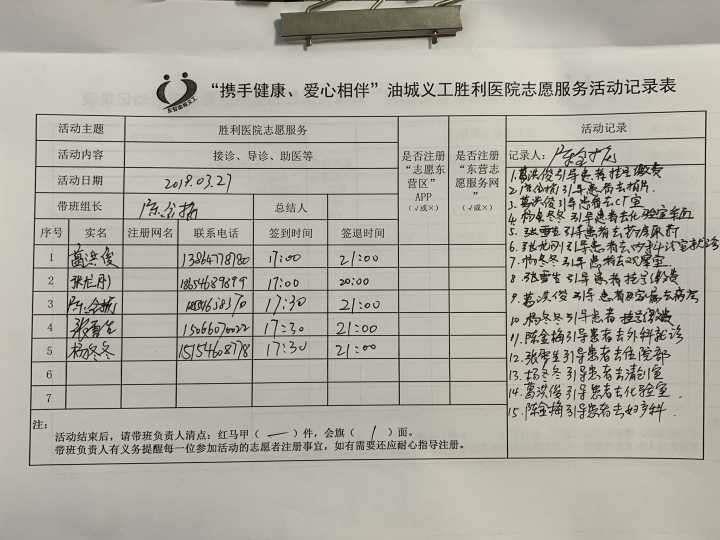 “携手健康、爱心相伴”油城义工胜利医院志愿服务活动记录表
活动主题 胜利医院志愿服务
活动内容 接诊、导诊、助医等
活动日期 2019.03.27
带班组长 陈金梅 总结人
是否注册“志愿东营区”APP（√或×）
是否注册“东营志愿服务网”（√或×）
序号 实名 注册网名 联系电话 签到时间 签退时间
1 葛洪俊 17:00 21:00
2 17:00 20:00
3 陈金梅 17:30 21:00
4 张雪生 15066070022 17:30 21:00
5 杨冬冬 15154608778 17:30 21:00
6
7
注：
活动结束后，请带班负责人清点：红马甲（ 一 ）件，会旗（ / ）面。
带班负责人有义务提醒每一位参加活动的志愿者注册事宜，如有需要还应耐心指导注册。
活动记录
记录人：陈金梅
1.葛洪俊引导患者挂号缴费
2.陈金梅引导患者去拍片.
3.葛洪俊引导患者去CT室
4.杨冬冬引导患者去化验室
5.张雪生引导患者去
6.引导患者去外科诊室就诊
7.杨冬冬引导患者去观察室
8.张雪生引导患者挂号缴费
9.葛洪俊引导患者家属去病房
10.杨冬冬引导患者挂号缴费
11.陈金梅引导患者去外科就诊
12.张雪生引导患者去住院部
13.杨冬冬引导患者去清创室
14.葛洪俊引导患者去化验室.
15.陈金梅引导患者去妇产科.